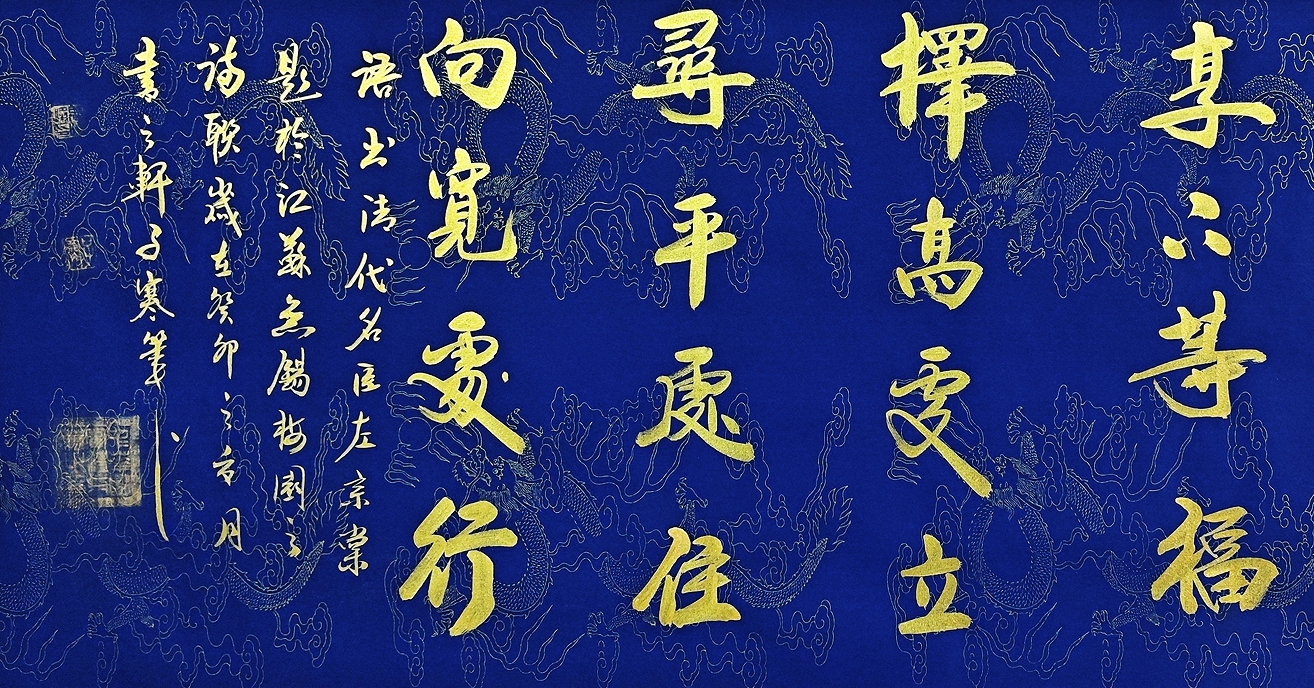 享下等福
擇高處立
尋平處住
向寬處行
語出清代名臣左宗棠
題於江蘇無錫梅園之
詩聯歲在癸卯之月
書之軒子寒筆